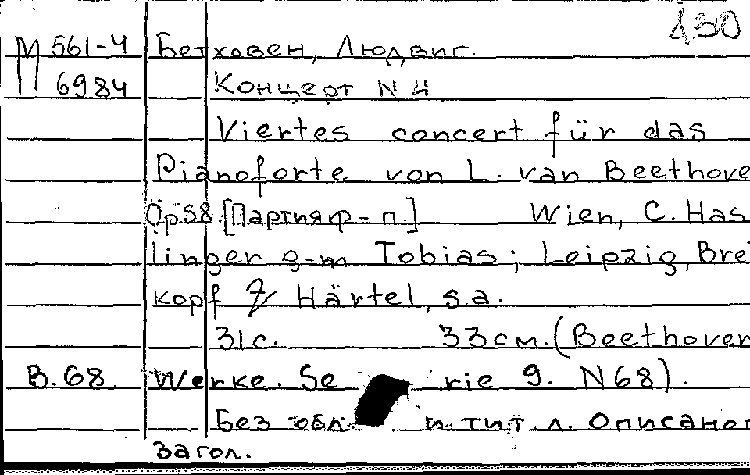 130
М 561-4 Бетховен, Людвиг.
6984 Концерт N 4
Viertes concert für das
Pianoforte von L. van Beethove
Op. 58. [Партия ф-п.] Wien, C. Has
linger g-m Tobias; Leipzig, Bre
kopf & Härtel, s.a.
31 с. 33 см. (Beethoven
В. 68. Werke. Se rie 9. N 68).
Без обл. и тит. л. Описано
загол.